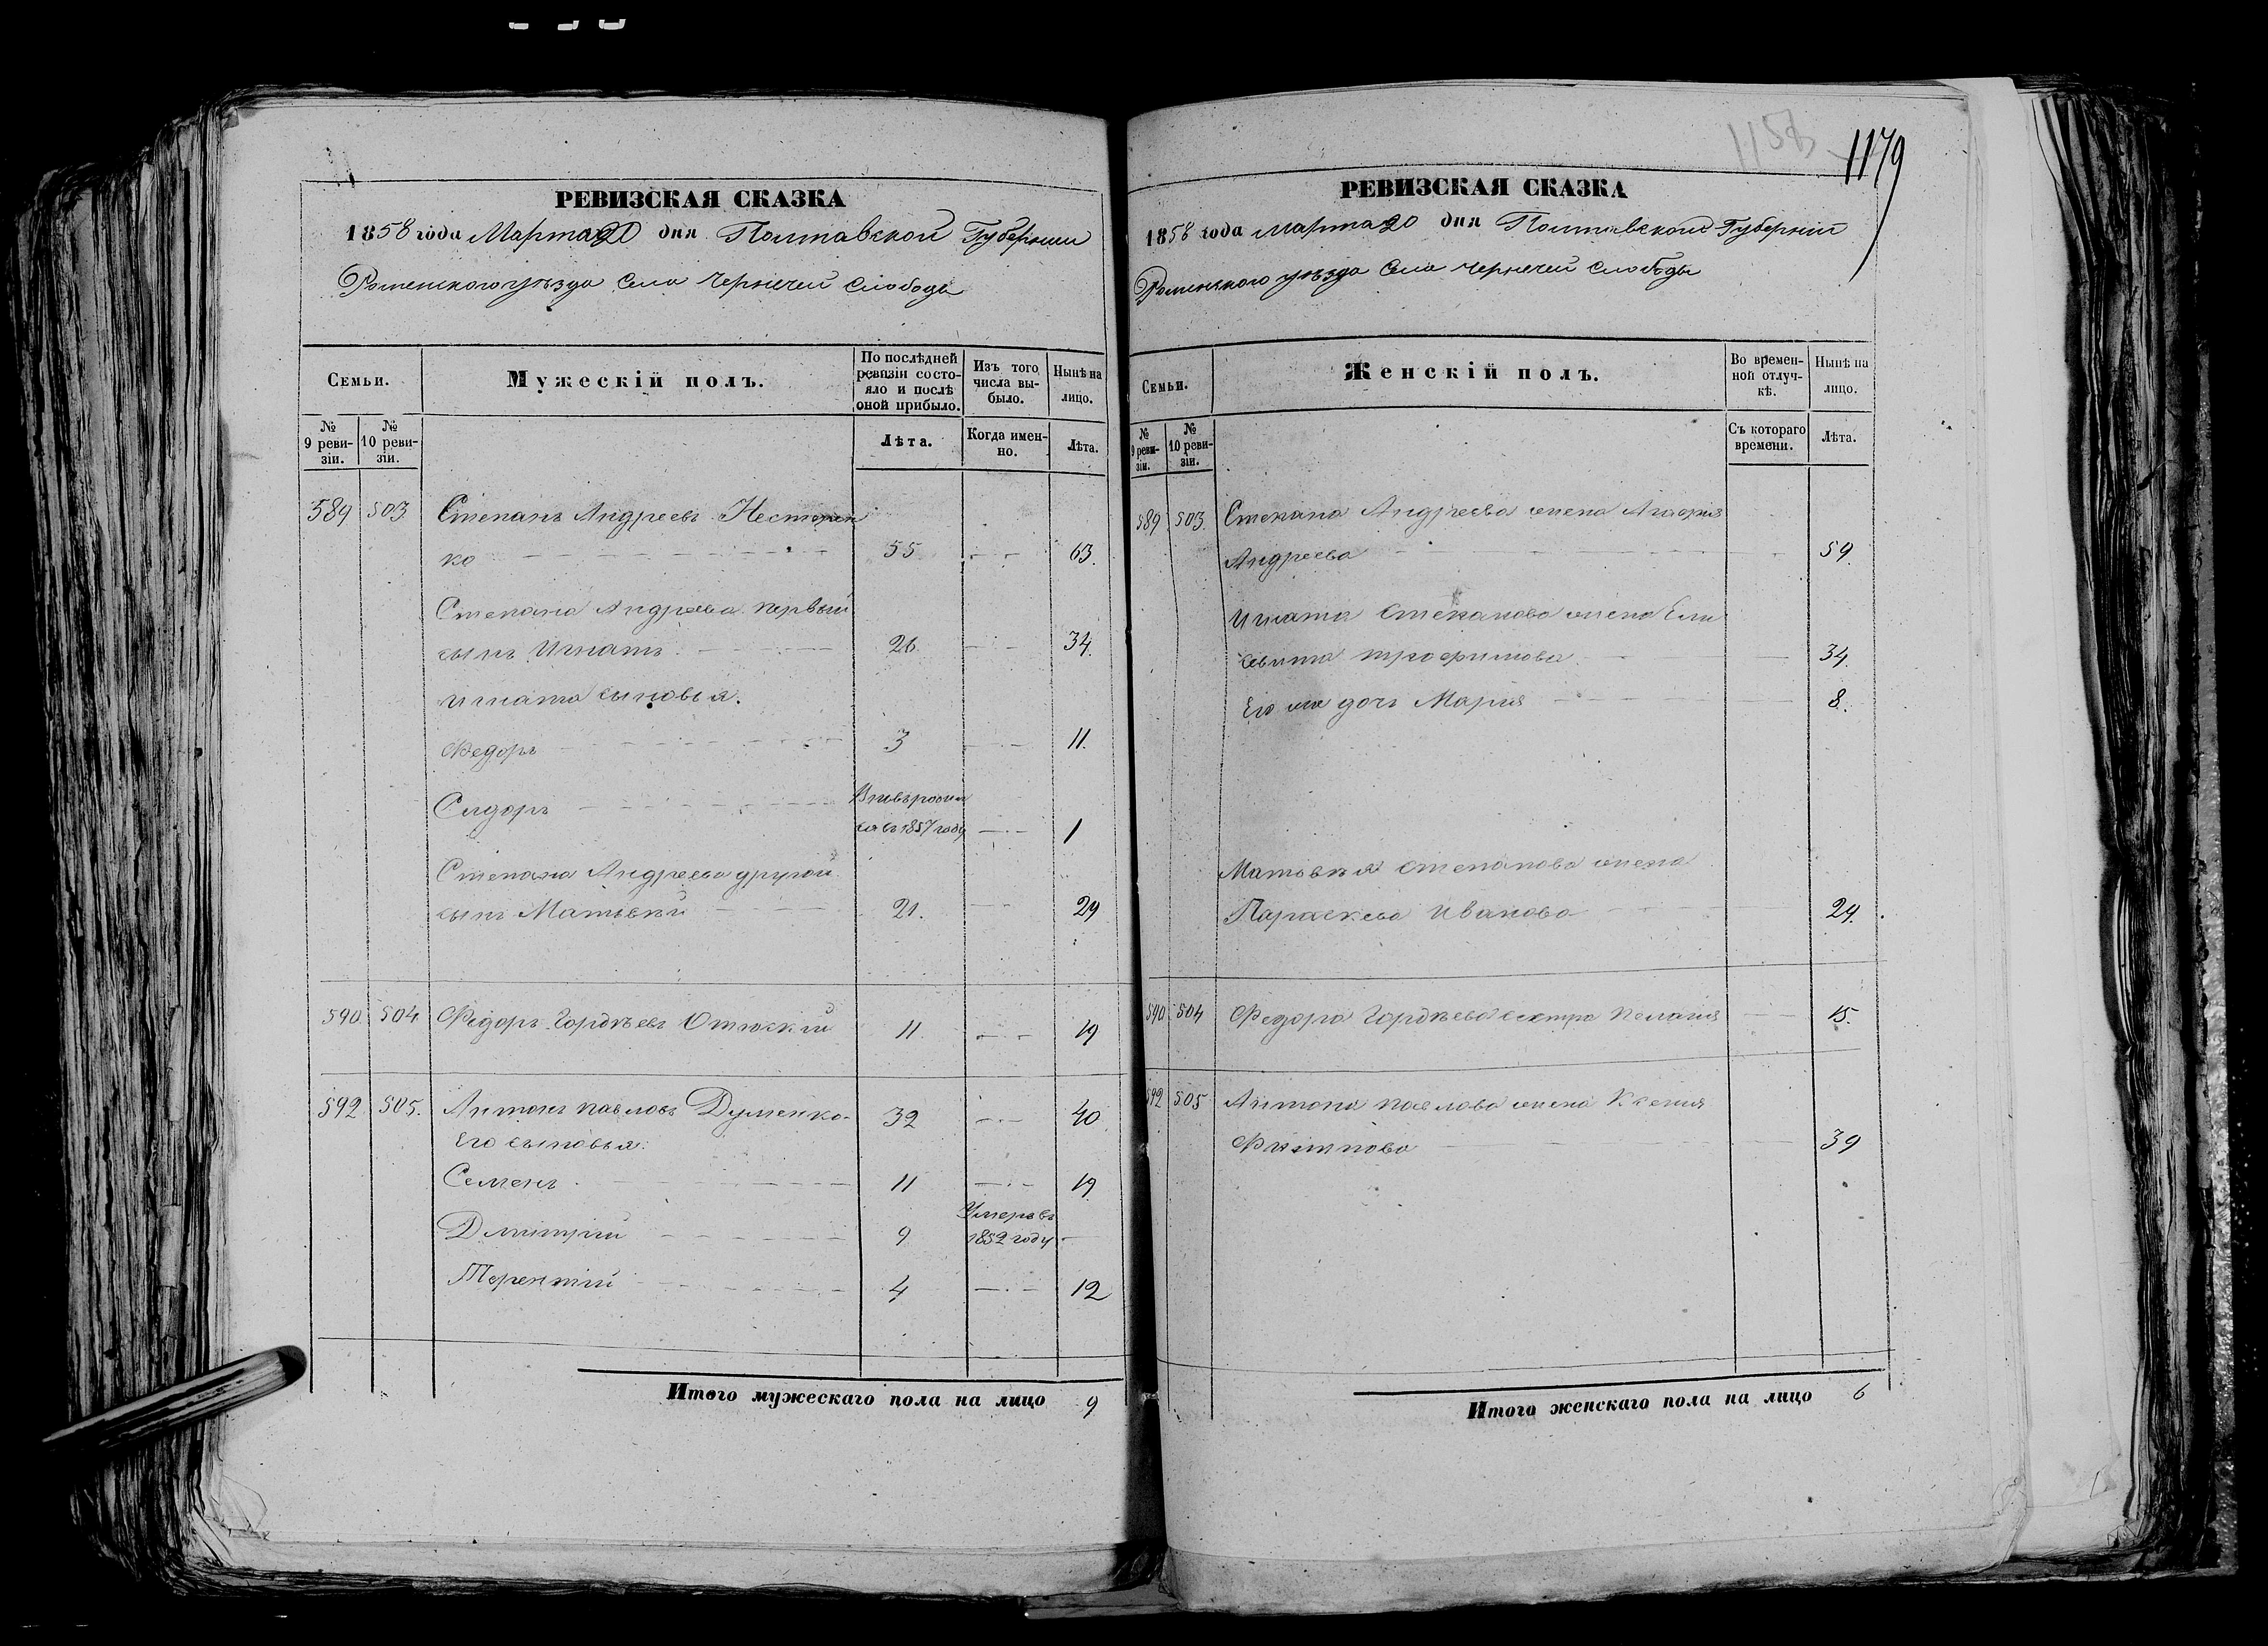 1158
1179
РЕВИЗСКАЯ СКАЗКА
1858 года Марта 20 дня Полтавской Губернии
Роменского уѣзда Села Чернечей Слободы
Семьи.
Мужескій полъ.
По послѣдней ревизіи состояло и послѣ оной прибыло.
Изъ того числа выбыло.
Нынѣ на лицо.
№ 9 ревизіи.
№ 10 ревизіи.
Лѣта.
Когда именно.
Лѣта.
589 503. Степанъ Андреевъ Нестерен
ко 55 63.
Степана Андреева первый
сынъ Игнатъ 26 34.
Игната сыновья.
Федоръ 3 11.
Сидоръ
въ 1857 году 1
Степана Андреева другой
сынъ Матвѣй 21. 29
590 504. Федоръ Гордѣевъ 11 19
592 505. Антонъ Павловъ Думенко 32 40
Его сыновья.
Семенъ 11 19
Дмитрий 9 Умеръ въ
1852 году
Терентий 4 12
Итого мужескаго пола на лицо 9
РЕВИЗСКАЯ СКАЗКА
1858 года Марта 20 дня Полтавской Губерніи
Роменского уѣзда Села Чернечей Слободы
Семьи.
Женскій полъ.
Во временной отлучкѣ.
Нынѣ на лицо.
№ 9 ревизіи.
№ 10 ревизіи.
Съ котораго времени.
Лѣта.
589 503. Степана Андреева жена
Андреева 59.
Игната Степанова жена Ели
савита Трофимова 34.
Его же дочь Мария 8.
Матвѣя Степанова жена
Параскева Иванова 24.
590 504 Федора Гордѣева сестра Пелагия 15.
592 505 Антона Павлова жена Ксения
Филипова 39
Итого женскаго пола на лицо 6